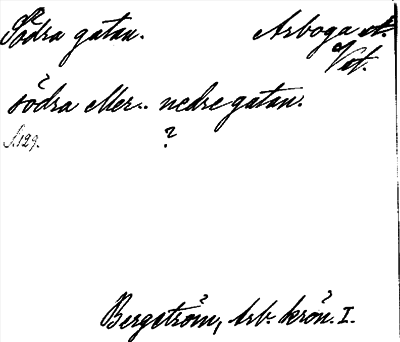 Södra gatan. Arboga st.
Vstm.
södra eller nedre gatan.
S. 129. ?
Bergström, Arb. krön. I.